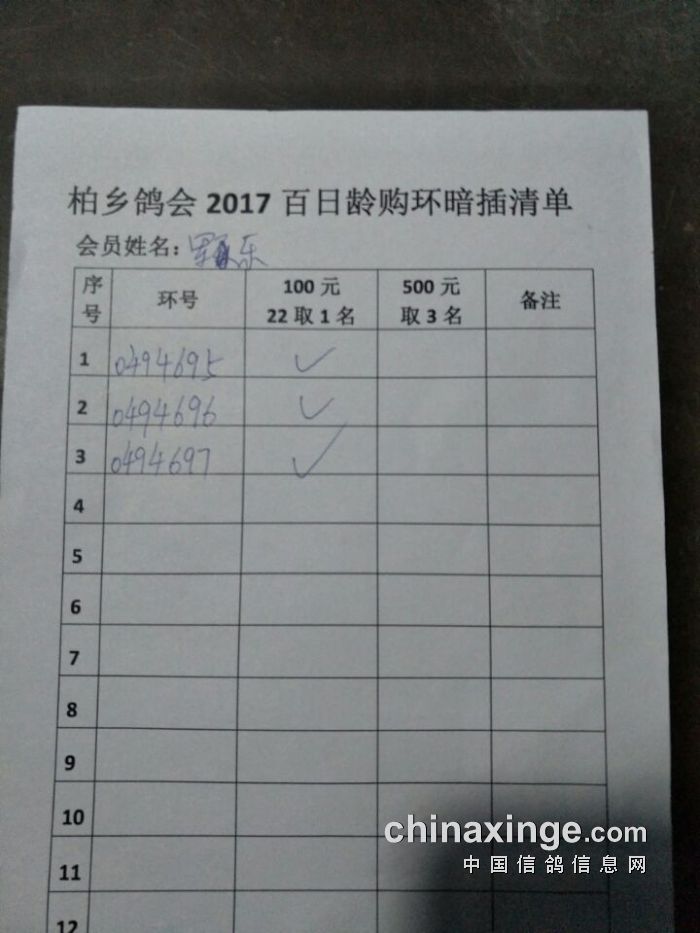 柏乡鸽会 2017 百日龄购环暗插清单
会员姓名：
序号 环号 100 元 22 取 1 名 500 元 取 3 名 备注
1 0494695 ✓
2 0494696 ✓
3 0494697 ✓
4
5
6
7
8
9
10
11
12
chinaxinge.com
中国信鸽信息网